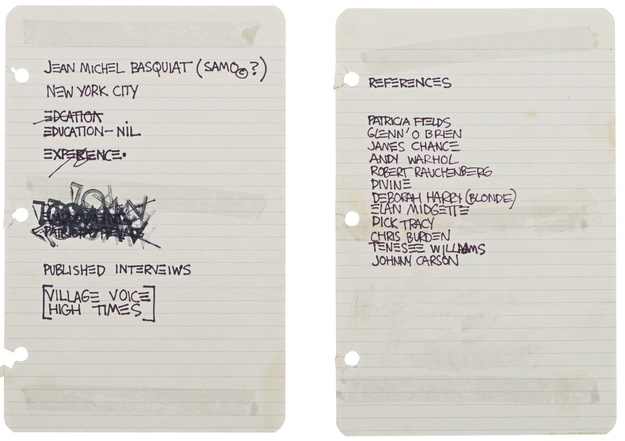 JEAN MICHEL BASQUIAT (SAMO©?)
NEW YORK CITY
EDCATION
EDUCATION-NIL
EXPERIENCE.
PUBLISHED INTERVEIWS
[VILLAGE VOICE
HIGH TIMES]
REFERENCES
PATRICIA FIELDS
GLENN'O BRIEN
JAMES CHANCE
ANDY WARHOL
ROBERT RAUCHENBERG
DIVINE
DEBORAH HARRY (BLONDE)
ELAN MIDGETTE
DICK TRACY
CHRIS BURDEN
TENESEE WILLIAMS
JOHNNY CARSON